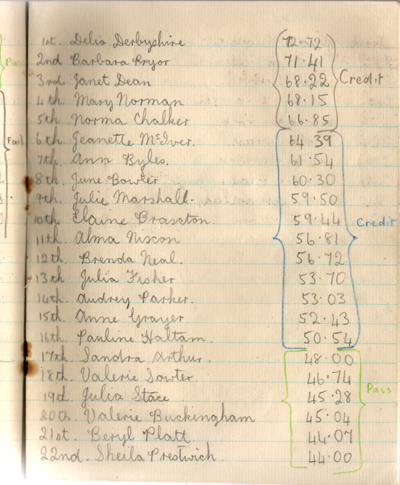 1st. Delia Derbyshire 72.72
2nd Barbara Pryor 71.41
3rd Janet Dean 68.22 Credit
4th Mary Norman 68.15
5th Norma Chalker 66.85
Fail 6th Jeanette McIver. 64.39
7th Ann Byles. 61.54
8th June Bowler 60.30
9th Julie Marshall. 59.50
10th Elaine 59.44 Credit
11th Alma 56.81
12th Brenda Neal. 56.72
13th Julia Fisher 53.70
14th Audrey Parker. 53.03
15th Anne Grayer. 52.43
16th Pauline Haltam. 50.54
17th Sandra Arthur. 48.00
18th. Valerie Sowter. 46.74 Pass
19th. Julia Stace 45.28
20th. Valerie Buckingham 45.04
21st. Beryl Platt 44.07
22nd. Sheila Prestwich 44.00